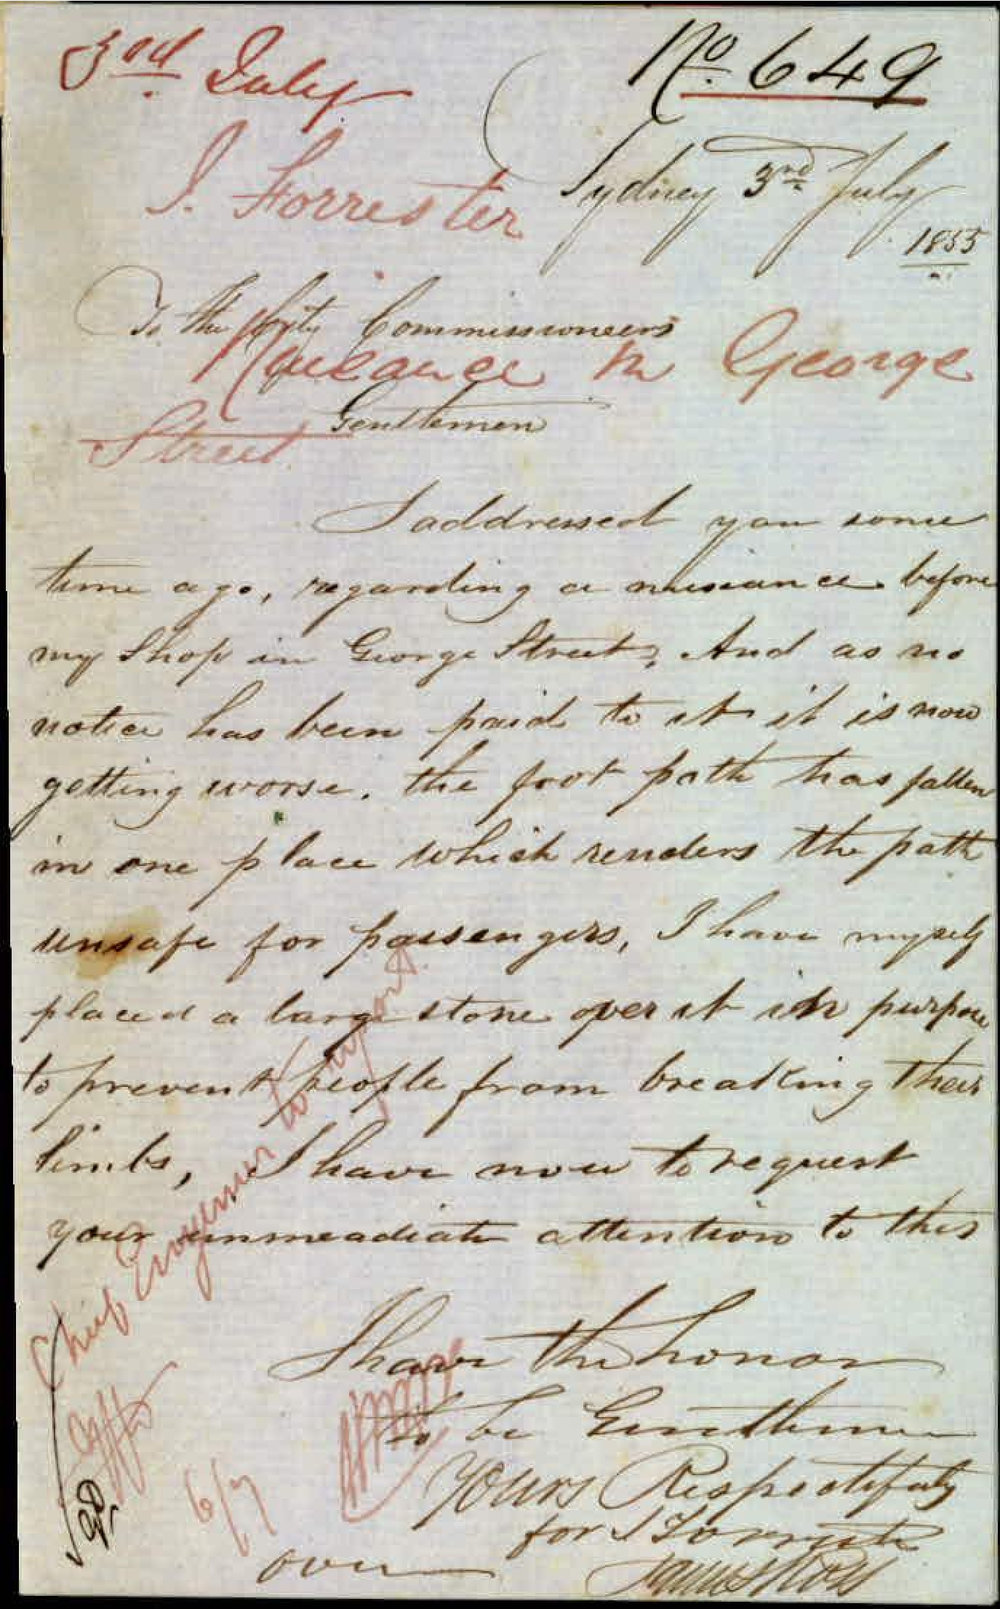 3rd July
No. 649
J. Forrester
Sydney 3rd July
1855
To the City Commissioneers
Nuisance in George
Street
Gentlemen
I addressed you some
time ago, regarding a nuisance before
my Shop in George Street, And as no
notice has been paid to it it is now
getting worse. the foot path has fallen
in one place which renders the path
unsafe for passengers, I have myself
placed a large stone over it in purpose
to prevent people from breaking their
limbs, I have now to request
your immeadiate attention to this
I have the honor
to be Gentlemen
Yours Respectfuly
for J Forrester
James
over
Chief Engineer to report
6/7